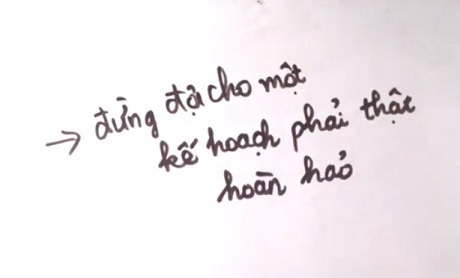 → đừng đợi cho một
kế hoạch phải thật
hoàn hảo